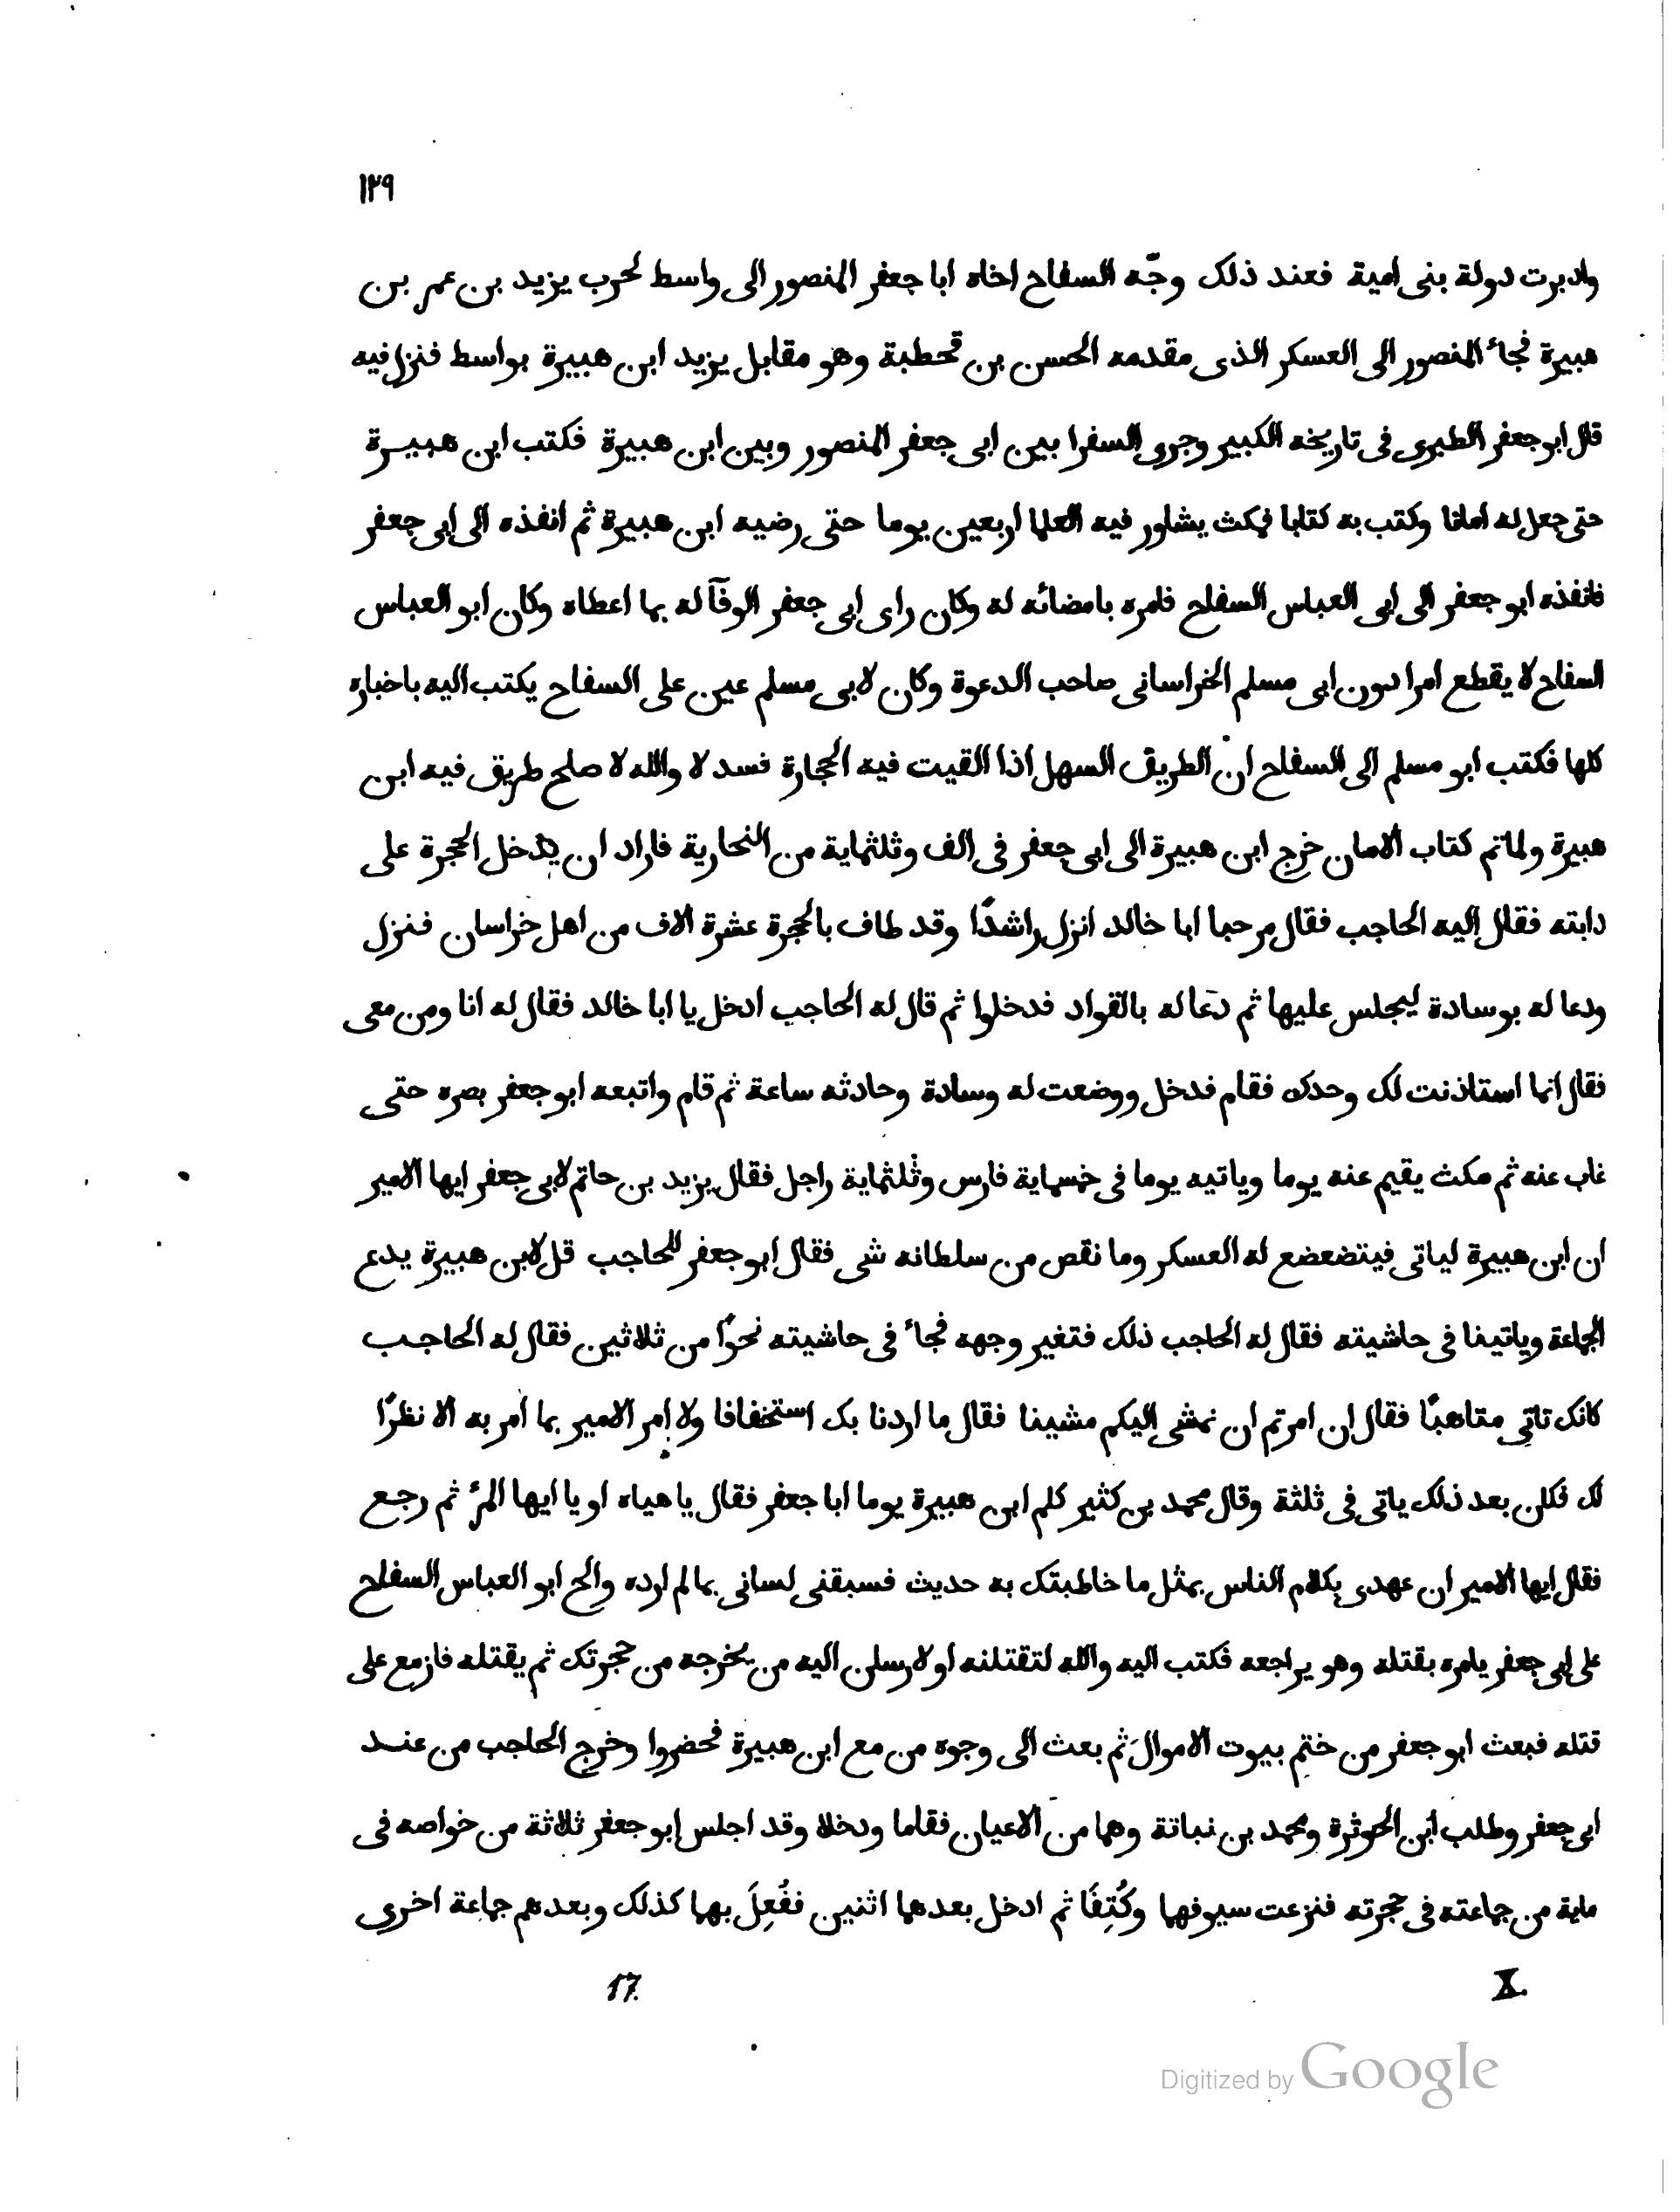 ١٢٩
وادبرت دولة بنى امية فعند ذلك وجّه السفاح اخاه ابا جعفر المنصور الى واسط لحرب يزيد بن عمر بن
هبيرة فجاء المنصور الى العسكر الذى مقدمه الحسن بن قحطبة وهو مقابل يزيد ابن هبيرة بواسط فنزل فيه
قال ابو جعفر الطبرى فى تاريخه الكبير وجرى السفرا بين ابى جعفر المنصور وبين ابن هبيرة فكتب ابن هبيرة
حتى جعل له امانا وكتب به كتابا فمكث يشاور فيه العلما اربعين يوما حتى رضيه ابن هبيرة ثم انفذه الى ابى جعفر
فانفذه ابو جعفر الى ابى العباس السفاح فامره بامضائه له وكان راى ابى جعفر الوفآ له بما اعطاه وكان ابو العباس
السفاح لا يقطع امرا دون ابى مسلم الخراسانى صاحب الدعوة وكان لابى مسلم عين على السفاح يكتب اليه باخباره
كلها فكتب ابو مسلم الى السفاح ان الطريق السهل اذا القيت فيه الحجارة فسد لا والله لا صلح طريق فيه ابن
هبيرة ولما تم كتاب الامان خرج ابن هبيرة الى ابى جعفر فى الف وثلثماية من النحارية فاراد ان يدخل الحجرة على
دابته فقال اليه الحاجب فقال مرحبا ابا خالد انزل راشدًا وقد طاف بالحجرة عشرة الاف من اهل خراسان فنزل
ودعا له بوسادة ليجلس عليها ثم دعا له بالقواد فدخلوا ثم قال له الحاجب ادخل يا ابا خالد فقال له انا ومن معى
فقال انما استاذنت لك وحدك فقام فدخل ووضعت له وسادة وحادثه ساعة ثم قام واتبعه ابو جعفر بصره حتى
غاب عنه ثم مكث يقيم عنه يوما وياتيه يوما فى خمسماية فارس وثلثماية راجل فقال يزيد بن حاتم لابى جعفر ايها الامير
ان ابن هبيرة لياتى فيتضعضع له العسكر وما نقص من سلطانه شى فقال ابو جعفر للحاجب قل لابن هبيرة يدع
الجماعة وياتينا فى حاشيته فقال له الحاجب ذلك فتغير وجهه فجاء فى حاشيته نحوًا من ثلاثين فقال له الحاجب
كانك تاتى متاهبًا فقال ان امرتم ان نمشى اليكم مشينا فقال ما اردنا بك استخفافا ولا امر الامير بما امر به الا نظرًا
لك فكان بعد ذلك ياتى فى ثلثة وقال محمد بن كثير كلم ابن هبيرة يوما ابا جعفر فقال يا هياه او يا ايها المرء ثم رجع
فقال ايها الامير ان عهدى بكلام الناس بمثل ما خاطبتك به حديث فسبقنى لسانى بما لم ارده والح ابو العباس السفاح
على ابى جعفر يامره بقتله وهو يراجعه فكتب اليه والله لتقتلنه او لارسلن اليه من يخرجه من حجرتك ثم يقتله فازمع على
قتله فبعث ابو جعفر من ختم بيوت الاموال ثم بعث الى وجوه من مع ابن هبيرة فحضروا وخرج الحاجب من عند
ابى جعفر وطلب ابن الحوثرة ومحمد بن نباتة وهما من الاعيان فقاما ودخلا وقد اجلس ابو جعفر ثلاثة من خواصه فى
ماية من جماعته فى حجرته فنزعت سيوفهما وكُتِفَا ثم ادخل بعدهما اثنين ففُعِلَ بهما كذلك وبعدهم جماعة اخرى
X. 17
Digitized by Google